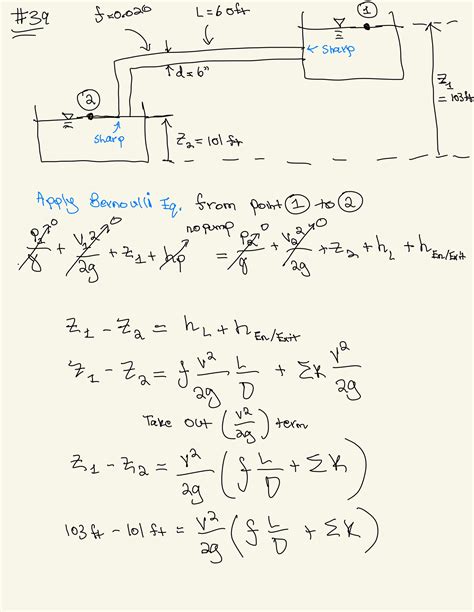 #39
f=0.020
L=60ft
①
← sharp
d=6"
Z₁
= 103ft
②
sharp
Z₂ = 101 ft
Apply Bernoulli Eq. from point ① to ②
no pump
P₁/γ ⁰ + V₁²/2g ⁰ + Z₁ + hp = P₂/γ ⁰ + V₂²/2g ⁰ + Z₂ + h_L + h_En/Exit
Z₁ - Z₂ = h_L + h_En/Exit
Z₁ - Z₂ = f V²/2g L/D + ΣK V²/2g
Take out (V²/2g) term
Z₁ - Z₂ = V²/2g (f L/D + ΣK)
103 ft - 101 ft = V²/2g (f L/D + ΣK)